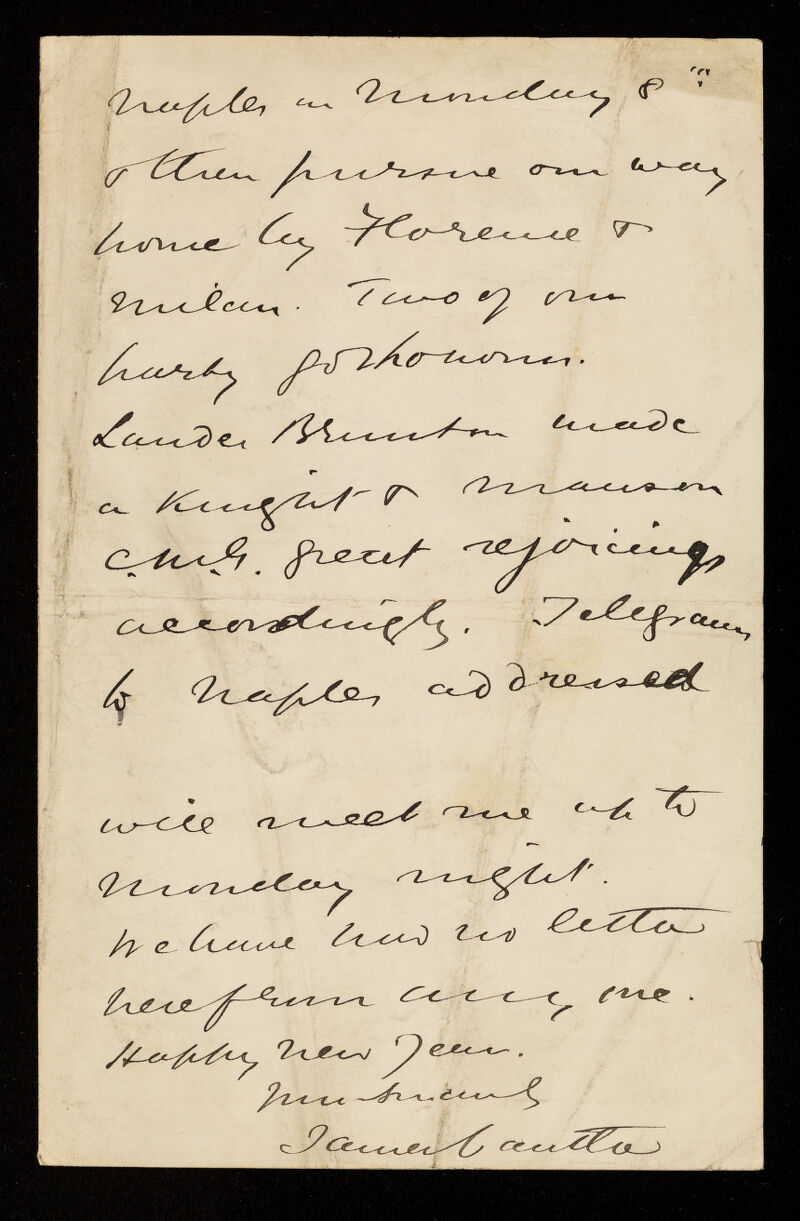 Naples on Monday 8th
& then pursue our way
home by Florence &
Milan. Two of our
party got honours.
Lauder Brunton made
a Knight & Manson
C.M.G. great rejoicings
accordingly. Telegrams
to Naples addressed
will meet me up to
Monday night.
We have had no letter
here from any one.
Happy New Year.
Yours sincerely
James Cantlie